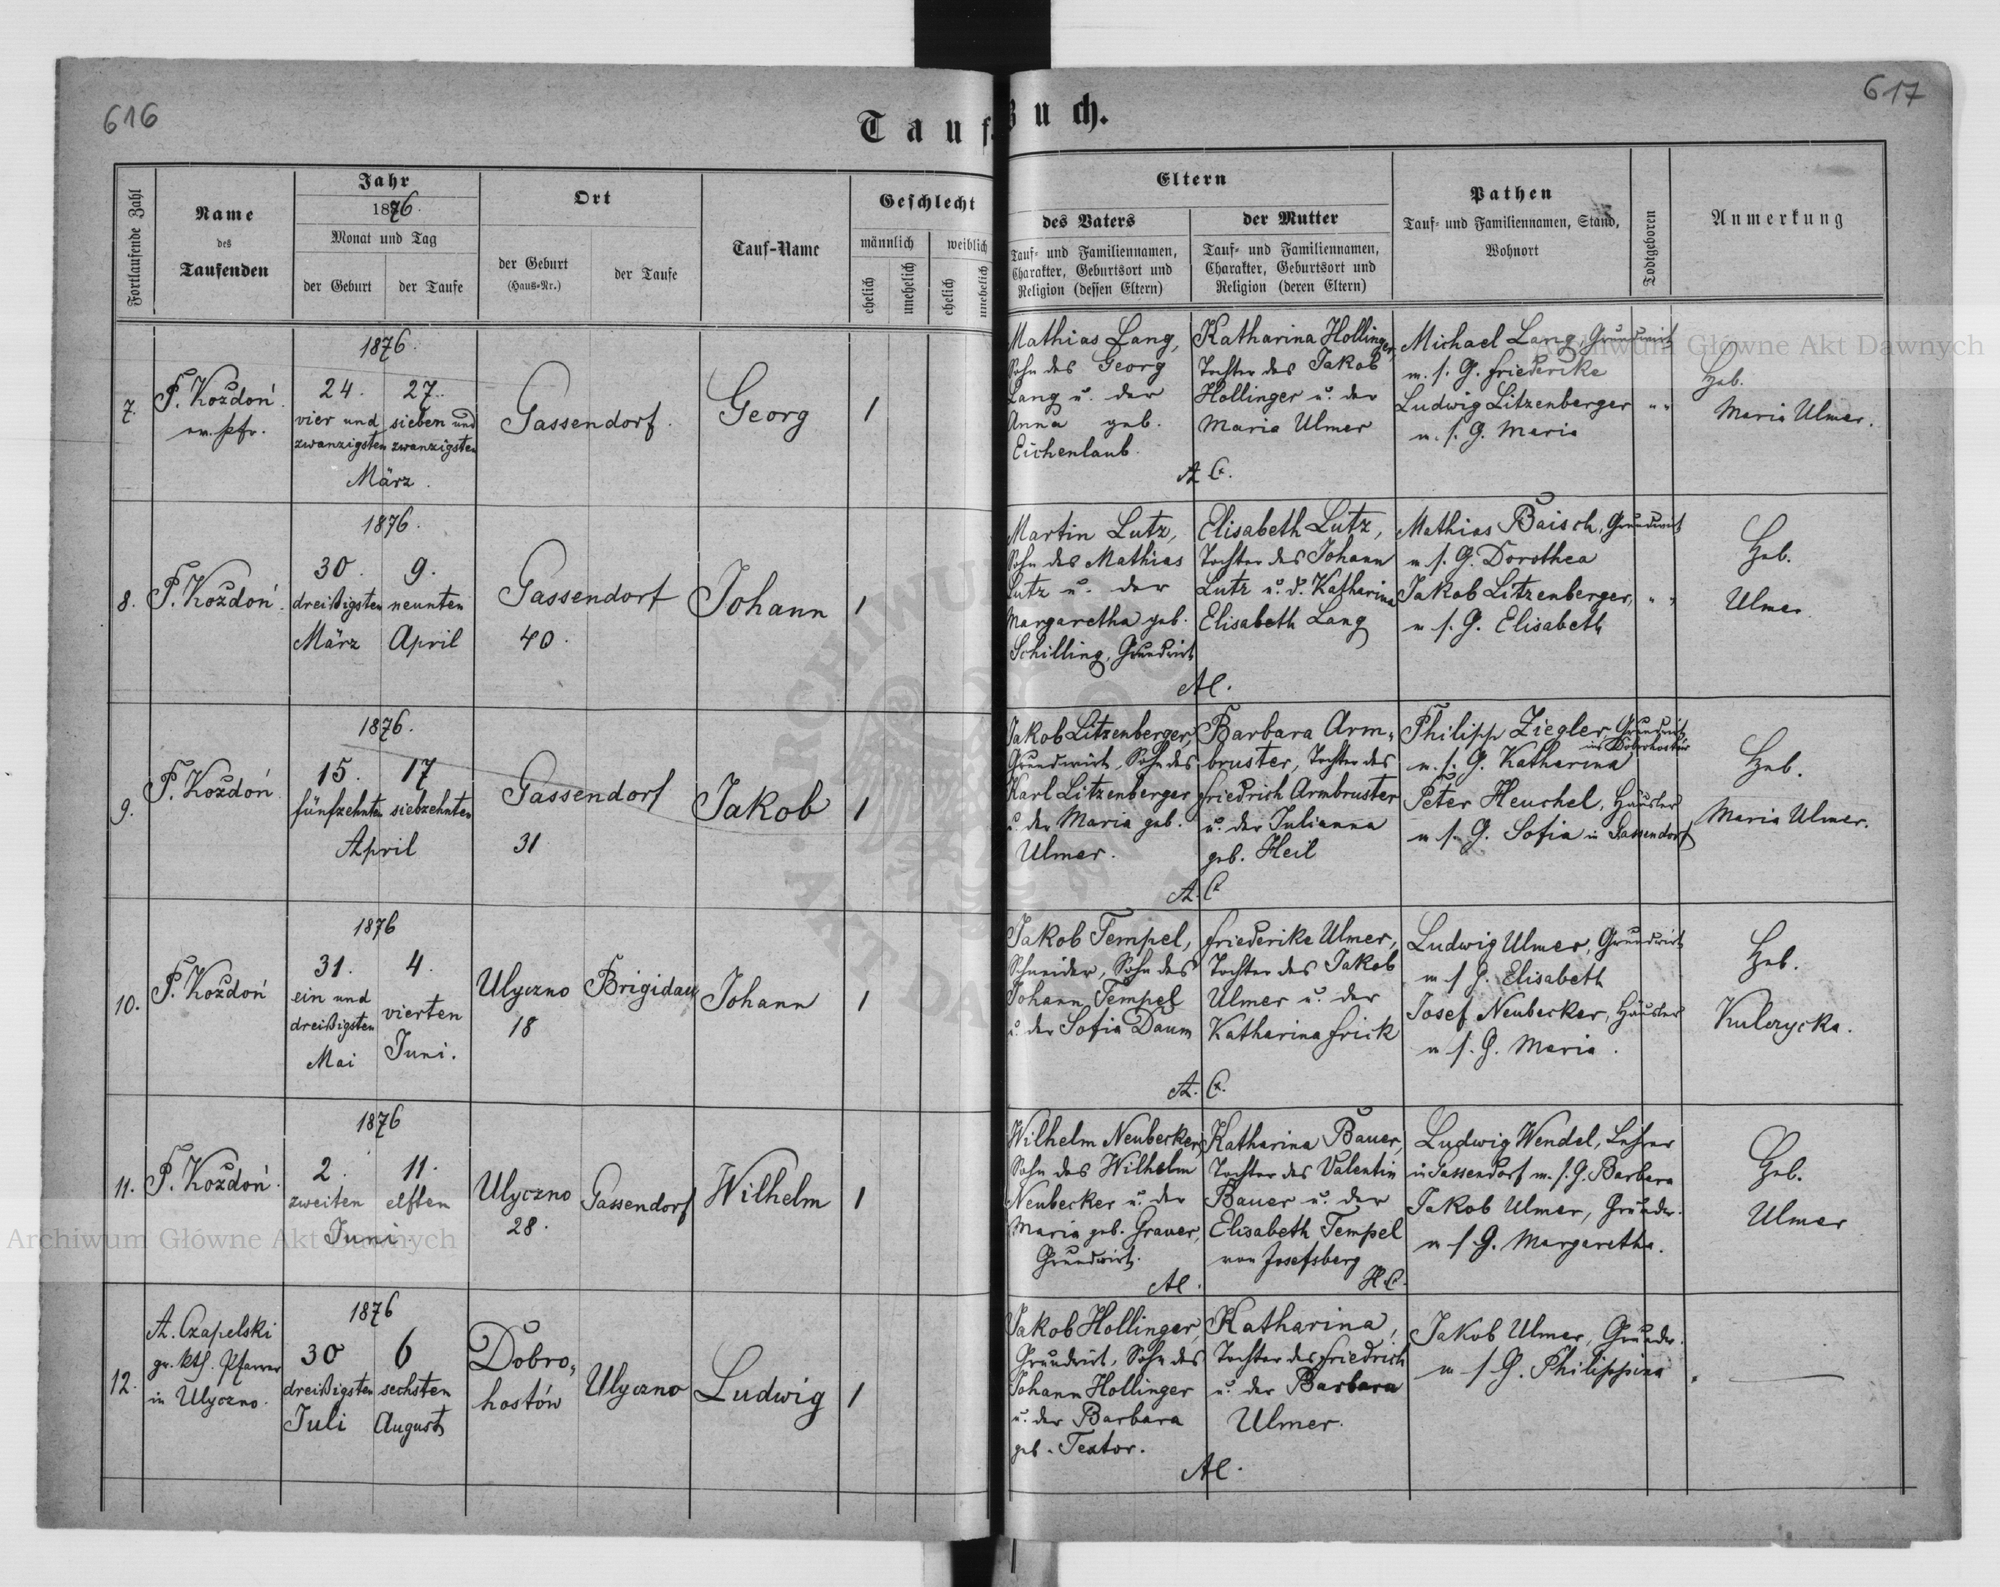 616
617
Tauf-Buch.
Fortlaufende Zahl
Name
des
Taufenden
Jahr
1876.
Monat und Tag
der Geburt
der Taufe
Ort
der Geburt
(Haus-Nr.)
der Taufe
Tauf-Name
Geschlecht
männlich
weiblich
ehelich
unehelich
ehelich
unehelich
Eltern
des Vaters
Tauf- und Familiennamen,
Charakter, Geburtsort und
Religion (dessen Eltern)
der Mutter
Tauf- und Familiennamen,
Charakter, Geburtsort und
Religion (deren Eltern)
Pathen
Tauf- und Familiennamen, Stand,
Wohnort
Todtgeboren
Anmerkung
7.
P. Kożdoń
ev. Pfr.
1876.
24.
vier und
zwanzigsten
27.
sieben und
zwanzigsten
März.
Gassendorf.
Georg
1
Mathias Lang,
Sohn des Georg
Lang u. der
Anna geb.
Eichenlaub.
Katharina Hollinger,
Tochter des Jakob
Hollinger u. der
Maria Ulmer
A. C.
Michael Lang, Grundwirt
m. s. G. Friederike
Ludwig Litzenberger
u. s. G. Maria
" "
Heb.
Maria Ulmer.
8.
P. Kożdoń.
1876.
30.
dreißigsten
März
9.
neunten
April
Gassendorf
40.
Johann
1
Martin Lutz,
Sohn des Mathias
Lutz u. der
Margaretha geb.
Schilling, Grundwirt
Elisabeth Lutz,
Tochter des Johann
Lutz u. d. Katharina
Elisabeth Lang
AC.
Mathias Baisch, Grundwirt
m s. G. Dorothea
Jakob Litzenberger,
m s. G. Elisabeth
" "
Heb.
Ulmer
9.
P. Kożdoń
1876.
15.
fünfzehnten
17
siebzehnten
April
Gassendorf
31
Jakob
1
Jakob Litzenberger,
Grundwirt, Sohn des
Karl Litzenberger
u. der Maria geb.
Ulmer.
Barbara Arm-
bruster, Tochter des
Friedrich Armbruster
u. der Julianna
geb. Heil
A. C
Philipp Ziegler, Grundwirt
m. s. G. Katharina
Peter Heuchel, Häusler
m s. G. Sofia in Gassendorf
Heb.
Maria Ulmer.
10.
P. Kożdoń
1876
31.
ein und
dreißigsten
Mai
4.
vierten
Juni.
Ulyczno
18
Brigidau
Johann
1
Jakob Tempel,
Schneider, Sohn des
Johann Tempel
u. der Sofia Daum
Friederike Ulmer,
Tochter des Jakob
Ulmer u. der
Katharina Frick
A. C.
Ludwig Ulmer, Grundwirt
m s G. Elisabeth
Josef Neubecker, Häusler
m s. G. Maria.
Heb.
Kulczycka.
11.
P. Kożdoń.
1876
2.
zweiten
11.
elften
Juni.
Ulyczno
28.
Gassendorf
Wilhelm
1
Wilhelm Neubecker,
Sohn des Wilhelm
Neubecker u. der
Maria geb. Grauer,
Grundwirt.
AC.
Katharina Bauer,
Tochter des Valentin
Bauer u. der
Elisabeth Tempel
von Josefsberg
H.C.
Ludwig Wendel, Lehrer
in Gassendorf m. s. G. Barbara
Jakob Ulmer, Grundw.
m s G. Margaretha.
Heb.
Ulmer
12.
A. Czapelski
gr. kth. Pfarrer
in Ulyczno.
1876
30
dreißigsten
Juli
6
sechsten
August
Dobro-
hostów
Ulyczno
Ludwig
1
Jakob Hollinger,
Grundwirt, Sohn des
Johann Hollinger
u. der Barbara
geb. Textor.
Katharina,
Tochter des Friedrich
u. der Barbara
Ulmer.
AC.
Jakob Ulmer, Grundw.
m s G. Philippina
Archiwum Główne Akt Dawnych
Archiwum Główne Akt Dawnych